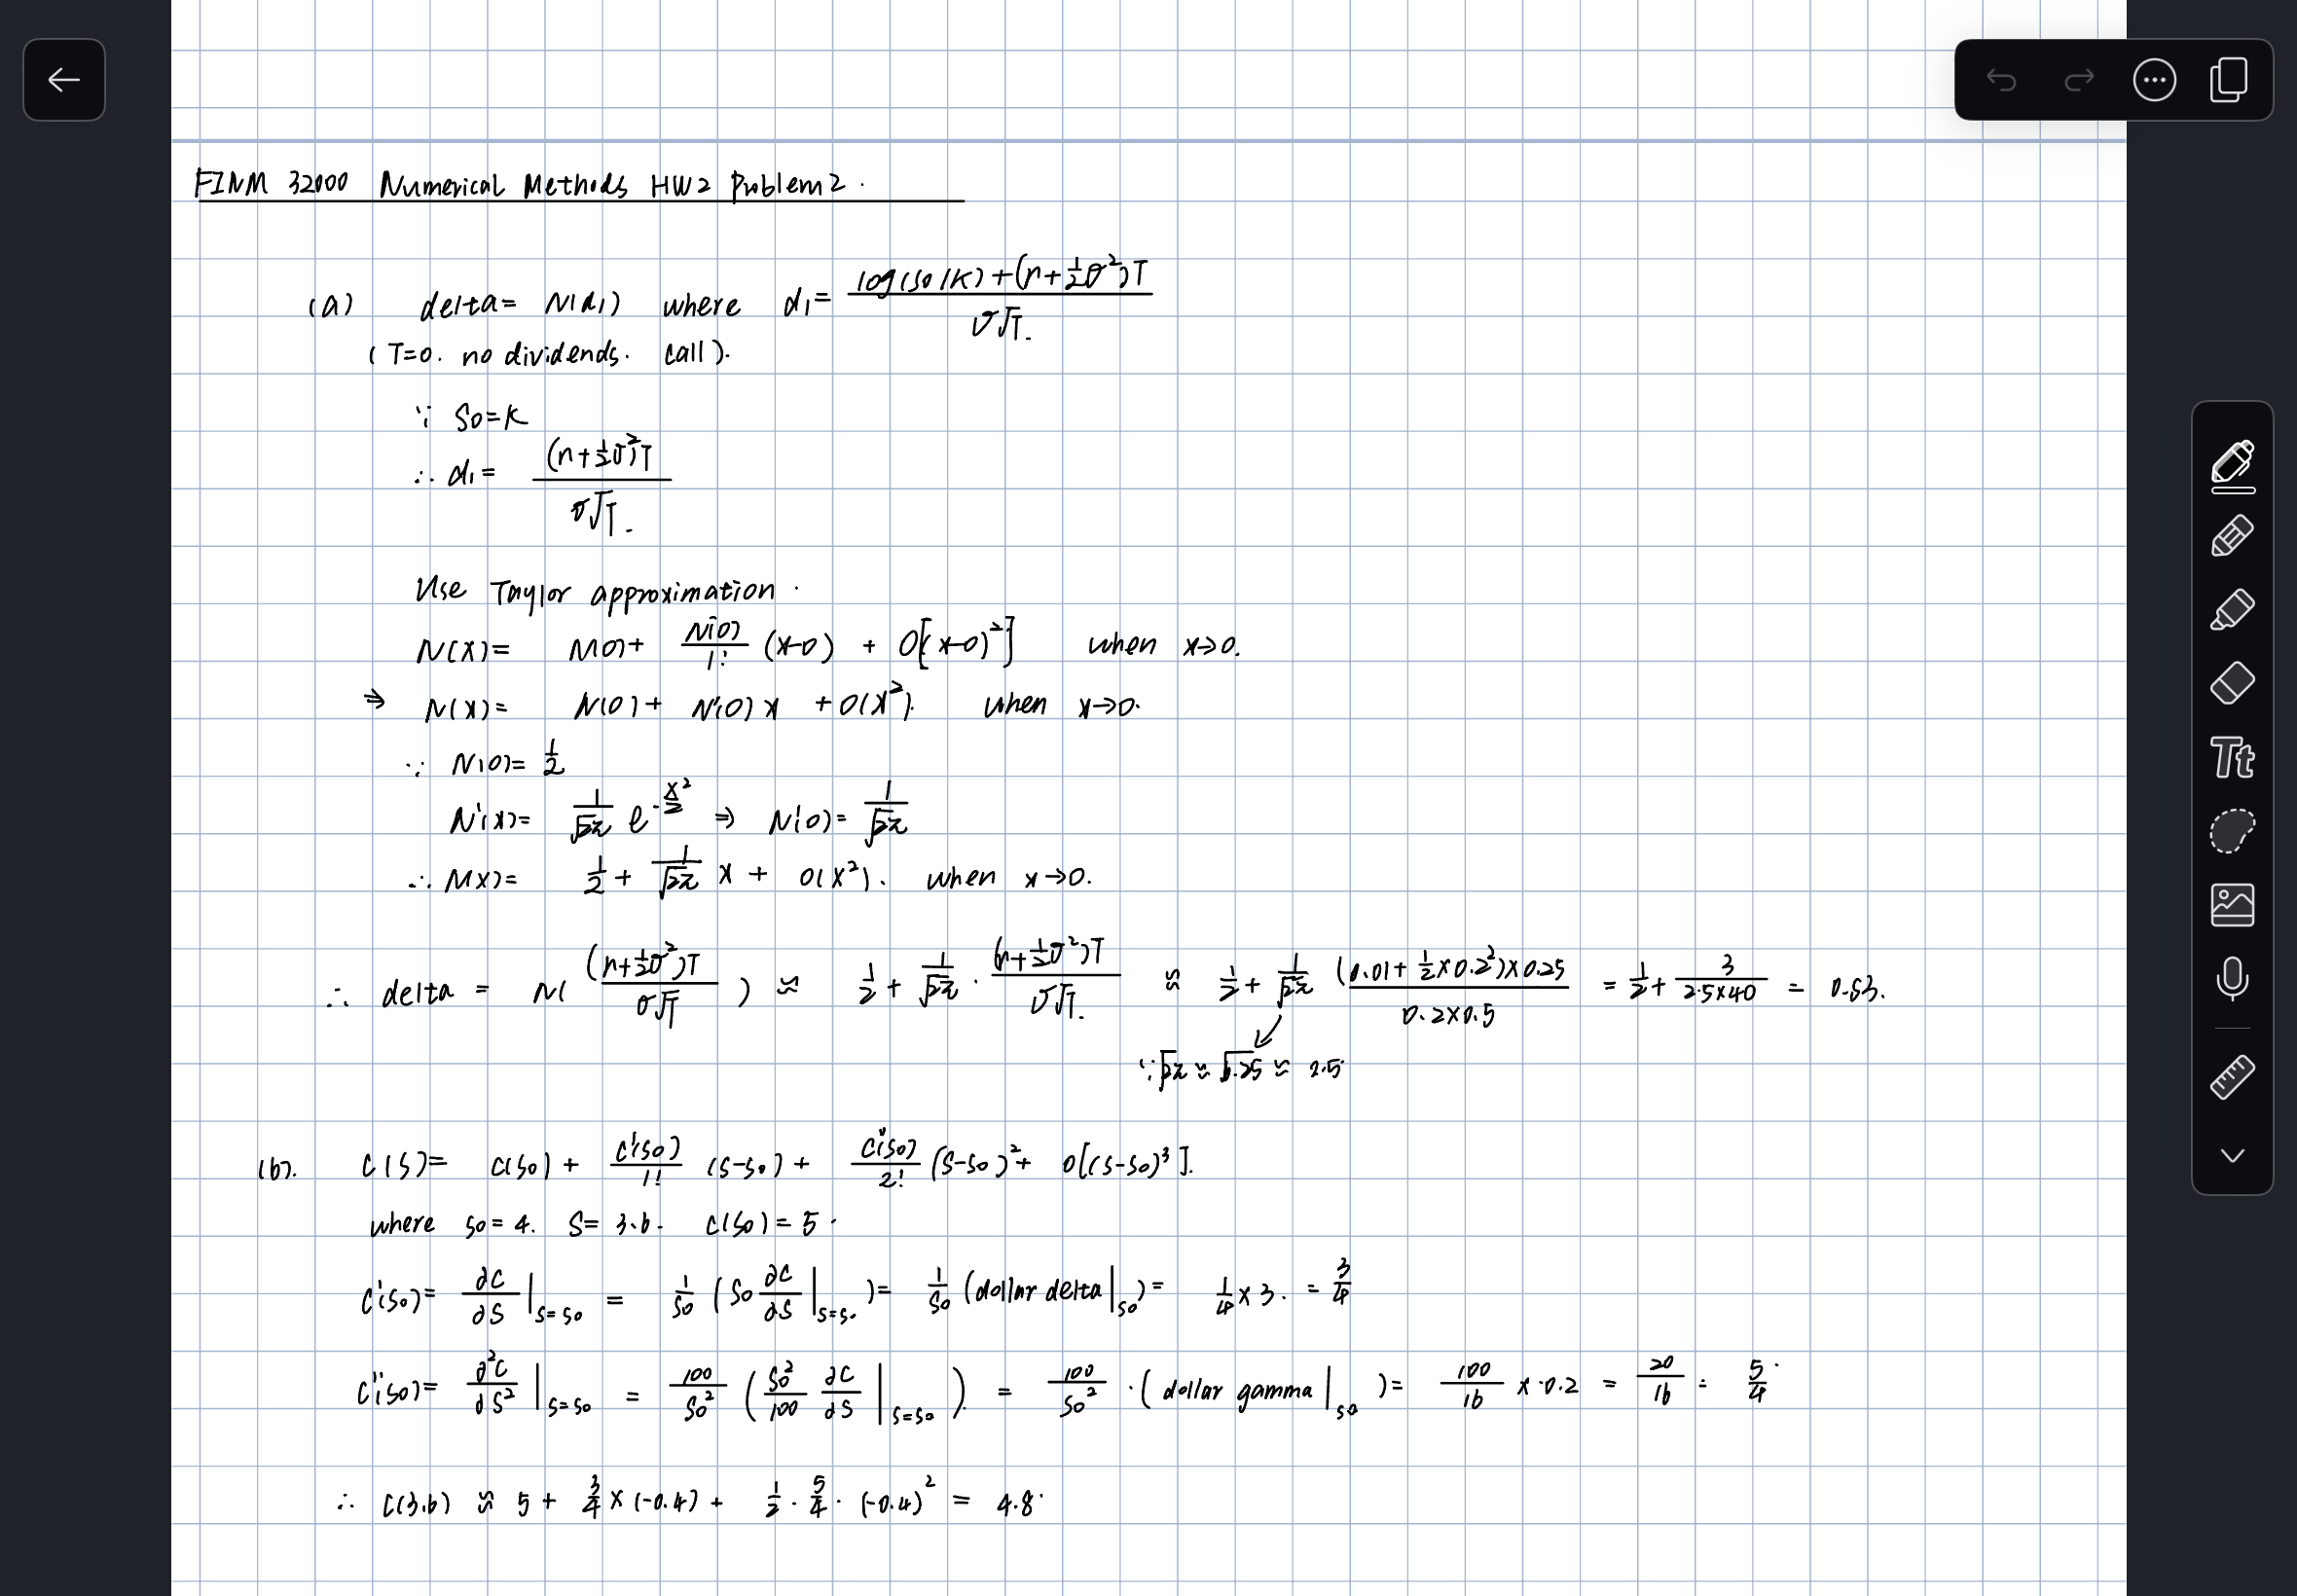 FINM 32000 Numerical Methods HW2 Problem2.
(a) delta = N(d₁) where d₁ = \frac{log(S0/K)+(r+\frac{1}{2}σ²)T}{σ√T}.
(T=0. no dividends. call).
∵ S0=K
∴ d₁ = \frac{(r+\frac{1}{2}σ²)T}{σ√T}.
Use Taylor approximation.
N(x)= N(0)+ \frac{N'(0)}{1!} (x-0) + O[(x-0)²] when x→0.
⇒ N(x)= N(0)+ N'(0)x + O(x²). when x→0.
∵ N(0)= \frac{1}{2}
N'(x)= \frac{1}{√2π} e^{-\frac{x²}{2}} ⇒ N'(0)= \frac{1}{√2π}
∴ N(x)= \frac{1}{2} + \frac{1}{√2π} x + O(x²). when x→0.
∴ delta = N(\frac{(r+\frac{1}{2}σ²)T}{σ√T}) ≈ \frac{1}{2} + \frac{1}{√2π} · \frac{(r+\frac{1}{2}σ²)T}{σ√T}. ≈ \frac{1}{2} + \frac{1}{√2π} \frac{(0.01+\frac{1}{2}×0.2²)×0.25}{0.2×0.5} = \frac{1}{2} + \frac{3}{2.5×40} = 0.53.
∵ √2π ≈ √6.25 ≈ 2.5
(b). C(S)= C(S0) + \frac{C'(S0)}{1!} (S-S0) + \frac{C''(S0)}{2!} (S-S0)² + O[(S-S0)³].
where S0=4. S=3.6. C(S0)=5.
C'(S0)= \frac{∂C}{∂S}|_{S=S0} = \frac{1}{S0} (S0 \frac{∂C}{∂S}|_{S=S0}) = \frac{1}{S0} (dollar delta|_{S0}) = \frac{1}{4}×3. = \frac{3}{4}
C''(S0)= \frac{∂²C}{∂S²}|_{S=S0} = \frac{100}{S0²} (\frac{S0²}{100} \frac{∂C}{∂S}|_{S=S0}). = \frac{100}{S0²} · (dollar gamma|_{S0}) = \frac{100}{16} × 0.2 = \frac{20}{16} = \frac{5}{4}.
∴ C(3.6) ≈ 5 + \frac{3}{4}×(-0.4) + \frac{1}{2} · \frac{5}{4} · (-0.4)² = 4.8.
Tt